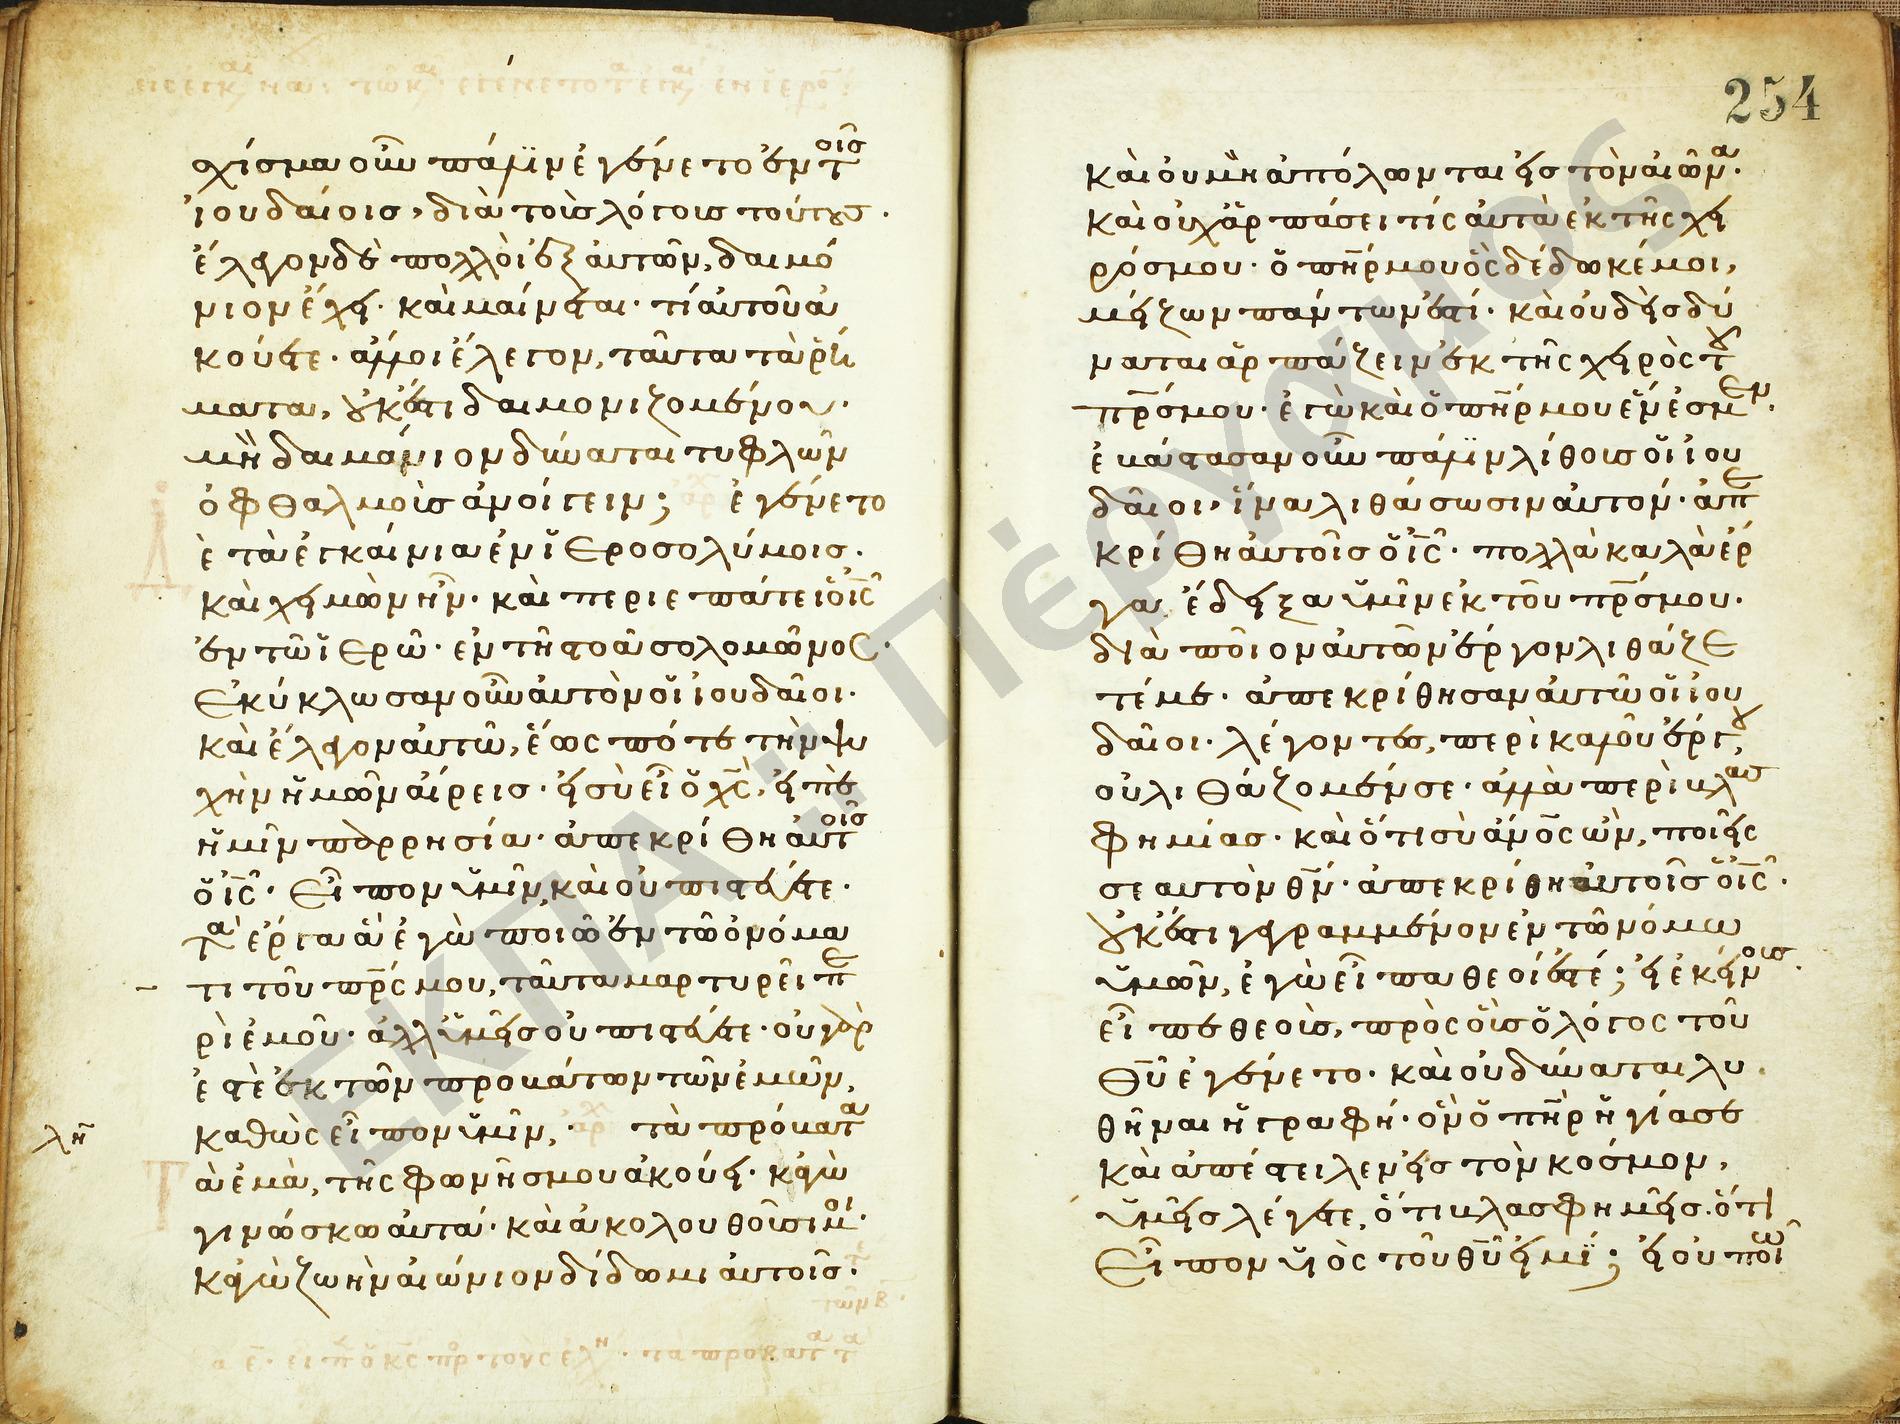 χίσμα οὖν πάλϊν ἐγένετο ἐν τοῖσ
ἰουδαίοισ, διὰ τοὺσ λόγουσ τούτουσ.
ἔλεγον δὲ πολλοὶ ἐξ αὐτῶν, δαιμό
νιον ἔχει. καὶ μαίνεται. τί αὐτοῦ ἀ
κούετε. ἄλλοι ἔλεγον, ταῦτα τὰ ῥή
ματα, οὐκ ἔστι δαιμονιζομένου.
μὴ δαιμόνιον δύναται τυφλῶν
ὀφθαλμοὺσ ἀνοίγειν; ἐγένετο
δὲ τὰ ἐγκαίνια ἐν ἱεροσολύμοισ.
καὶ χειμὼν ἦν. καὶ περιεπάτει ὁ ἰς
ἐν τῶ ἱερῶ. ἐν τῆ στοᾶ σολομῶνοσ.
ἐκύκλωσαν οὖν αὐτὸν οἱ ἰουδαῖοι.
καὶ ἔλεγον αὐτῶ, ἕως πότε τὴν ψυ
χὴν ἡμῶν αἴρεισ. εἰ σὺ εἶ ὁ χς, εἰπὲ
ἡμῖν παρρησία. ἀπεκρίθη αὐτοῖσ
ὁ ἰς. εἶπον ὑμῖν, καὶ οὐ πιστεύετε.
τὰ ἔργα ἃ ἐγὼ ποιῶ ἐν τῶ ὀνόμα
τι τοῦ πρς μου, ταῦτα μαρτυρεῖ πε
ρὶ ἐμοῦ. ἀλλ ὑμεῖσ οὐ πιστεύετε. οὐ γάρ
ἐστὲ ἐκ τῶν προβάτων τῶν ἐμῶν,
καθὼς εἶπον ὑμῖν, τὰ πρόβατα
τὰ ἐμὰ, τῆς φωνῆσ μου ἀκούει. κἀγὼ
γινώσκω αὐτά. καὶ ἀκολουθοῦσί μοι.
κἀγὼ ζωὴν αἰώνιον δίδωμι αὐτοῖσ.
λη
254
καὶ οὐ μὴ ἀπόλωνται εἰσ τὸν αἰῶνα.
καὶ οὐχ ἁρπάσει τίς αὐτὰ ἐκ τῆς χει
ρόσ μου. ὁ πηρ μου ὃς δέδωκέ μοι,
μείζων πάντων ἐστί. καὶ οὐδεὶσ δύ
ναται ἁρπάζειν ἐκ τῆς χειρὸς τοῦ
πρσ μου. ἐγὼ καὶ ὁ πηρ μου ἕν ἐσμεν.
ἐβάστασαν οὖν πάλϊν λίθουσ οἱ ἰου
δαῖοι, ἵνα λιθάσωσιν αὐτόν. ἀπε
κρίθη αὐτοῖσ ὁ ἰς. πολλὰ καλὰ ἔρ
γα ἔδειξα ὑμῖν ἐκ τοῦ πρσ μου.
διὰ ποῖον αὐτῶν ἔργον λιθάζε
τέ με. ἀπεκρίθησαν αὐτῶ οἱ ἰου
δαῖοι. λέγοντεσ, περὶ καλοῦ ἔργου,
οὐ λιθάζομέν σε. ἀλλὰ περὶ βλασ
φημίασ. καὶ ὅτι σὺ ἀνος ὢν, ποιεῖς
σεαυτὸν θν. ἀπεκρίθη αὐτοῖσ ὁ ἰς.
οὐκ ἔστι γεγραμμένον ἐν τῶ νόμω
ὑμῶν, ἐγὼ εἶπα θεοί ἐστέ; εἰ ἐκείνουσ.
εἶπε θεοὺσ, πρὸς οὓσ ὁ λόγος τοῦ
θυ ἐγένετο. καὶ οὐ δύναται λυ
θῆναι ἡ γραφή. ὃν ὁ πηρ ἡγίασε
καὶ ἀπέστειλεν εἰσ τὸν κόσμον,
ὑμεῖσ λέγετε, ὅτι βλασφημεῖσ. ὅτι
εἶπον υἱὸς τοῦ θυ εἰμί; εἰ οὐ ποιῶ
ΕΚΠΑ.: Πέργαμος